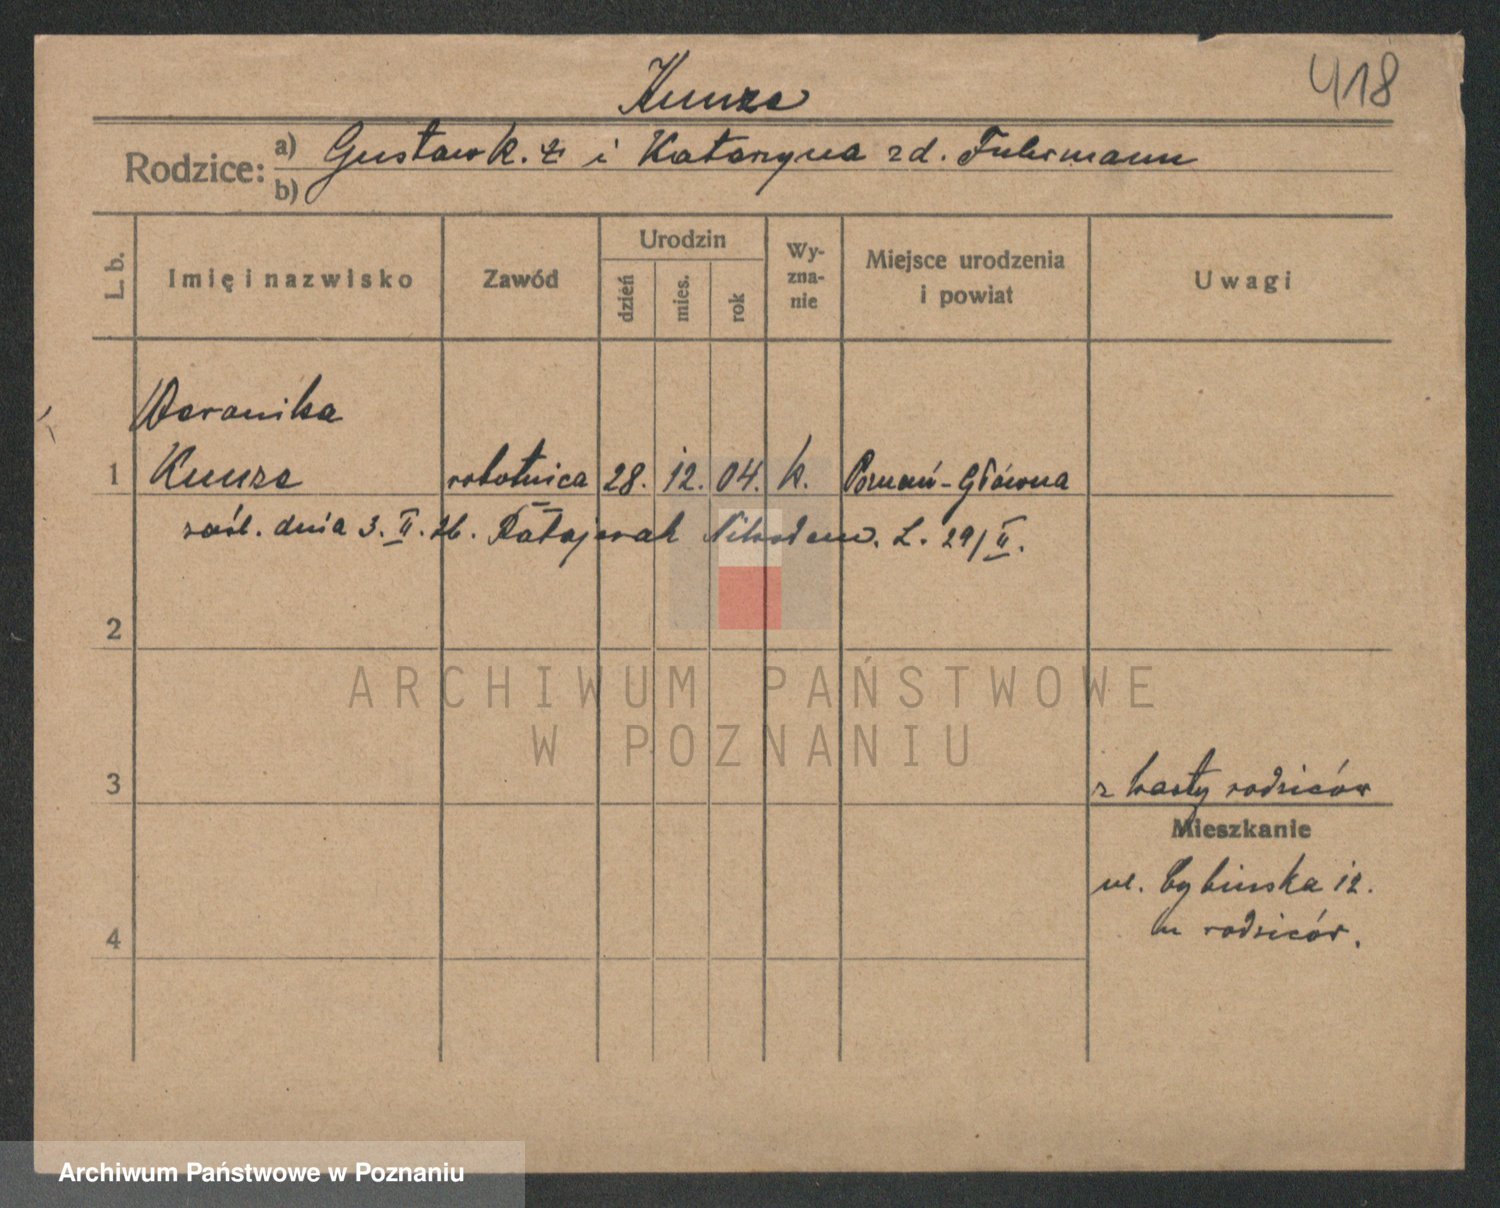 418
Kunze
Rodzice: a) Gustaw k. ż i Katarzyna zd. Fuhrmann
b)
L. b. Imię i nazwisko Zawód Urodzin dzień mies. rok Wy-zna-nie Miejsce urodzenia i powiat Uwagi
Weronika
1 Kunze robotnica 28. 12. 04. k. Poznań-Główna
zaśl. dnia 3. II. 26. Ratajczak Nikodem. L. 29/II.
2
ARCHIWUM PAŃSTWOWE
W POZNANIU
3 z karty rodziców
Mieszkanie
ul. Cybinska 12.
4 u rodziców.
Archiwum Państwowe w Poznaniu